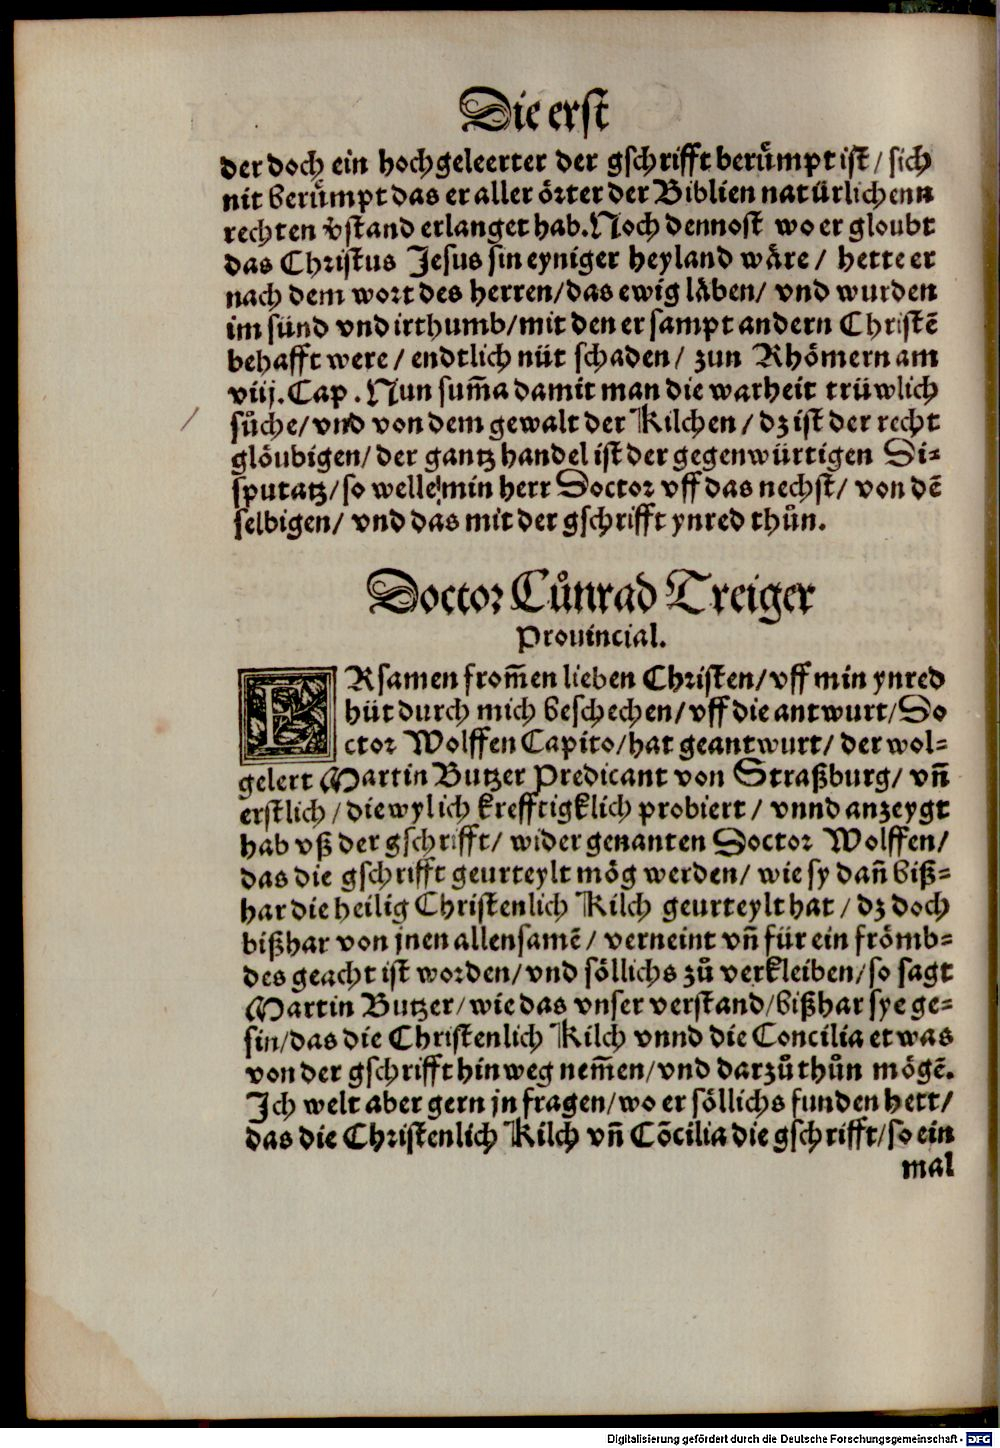 Die erst
der doch ein hochgeleerter der gschrifft berümpt ist / sich
nit berümpt das er aller örter der Biblien natürlichenn
rechten v̊stand erlanget hab. Noch dennost wo er gloubt
das Christus Jesus sin eyniger heyland wäre / hette er
nach dem wort des herren / das ewig läben / vnd wurden
im sünd vnd irthumb / mit den er sampt andern Christē
behafft were / endtlich nüt schaden / zun Rhömern am
viij. Cap. Nun sum̄a damit man die warheit trüwlich
sůche / vnd von dem gewalt der Kilchen / dz ist der recht
glöubigen / der gantz handel ist der gegenwürtigen Di-
sputatz / so welle min herr Doctor vff das nechst / von dē
selbigen / vnd das mit der gschrifft ynred thůn.
Doctor Cůnrad Treiger
Prouincial.
ERsamen from̄en lieben Christen / vff min ynred
hüt durch mich beschechen / vff die antwurt / Do
ctor Wolffen Capito / hat geantwurt / der wol-
gelert Martin Butzer Predicant von Straßburg / vn̄
erstlich / die wyl ich krefftigklich probiert / vnnd anzeygt
hab vß der gschrifft / wider genanten Doctor Wolffen /
das die gschrifft geurteylt mög werden / wie sy dan̄ biß-
har die heilig Christenlich Kilch geurteylt hat / dz doch
bißhar von jnen allensamē / verneint vn̄ für ein frömb-
des geacht ist worden / vnd söllichs zů verkleiben / so sagt
Martin Butzer / wie das vnser verstand / bißhar sye ge-
sin / das die Christenlich Kilch vnnd die Concilia etwas
von der gschrifft hinweg nem̄en / vnd darzů thůn mögē.
Ich welt aber gern jn fragen / wo er söllichs funden hett /
das die Christenlich Kilch vn̄ Cōcilia die gschrifft / so ein
mal
Digitalisierung gefördert durch die Deutsche Forschungsgemeinschaft - DFG